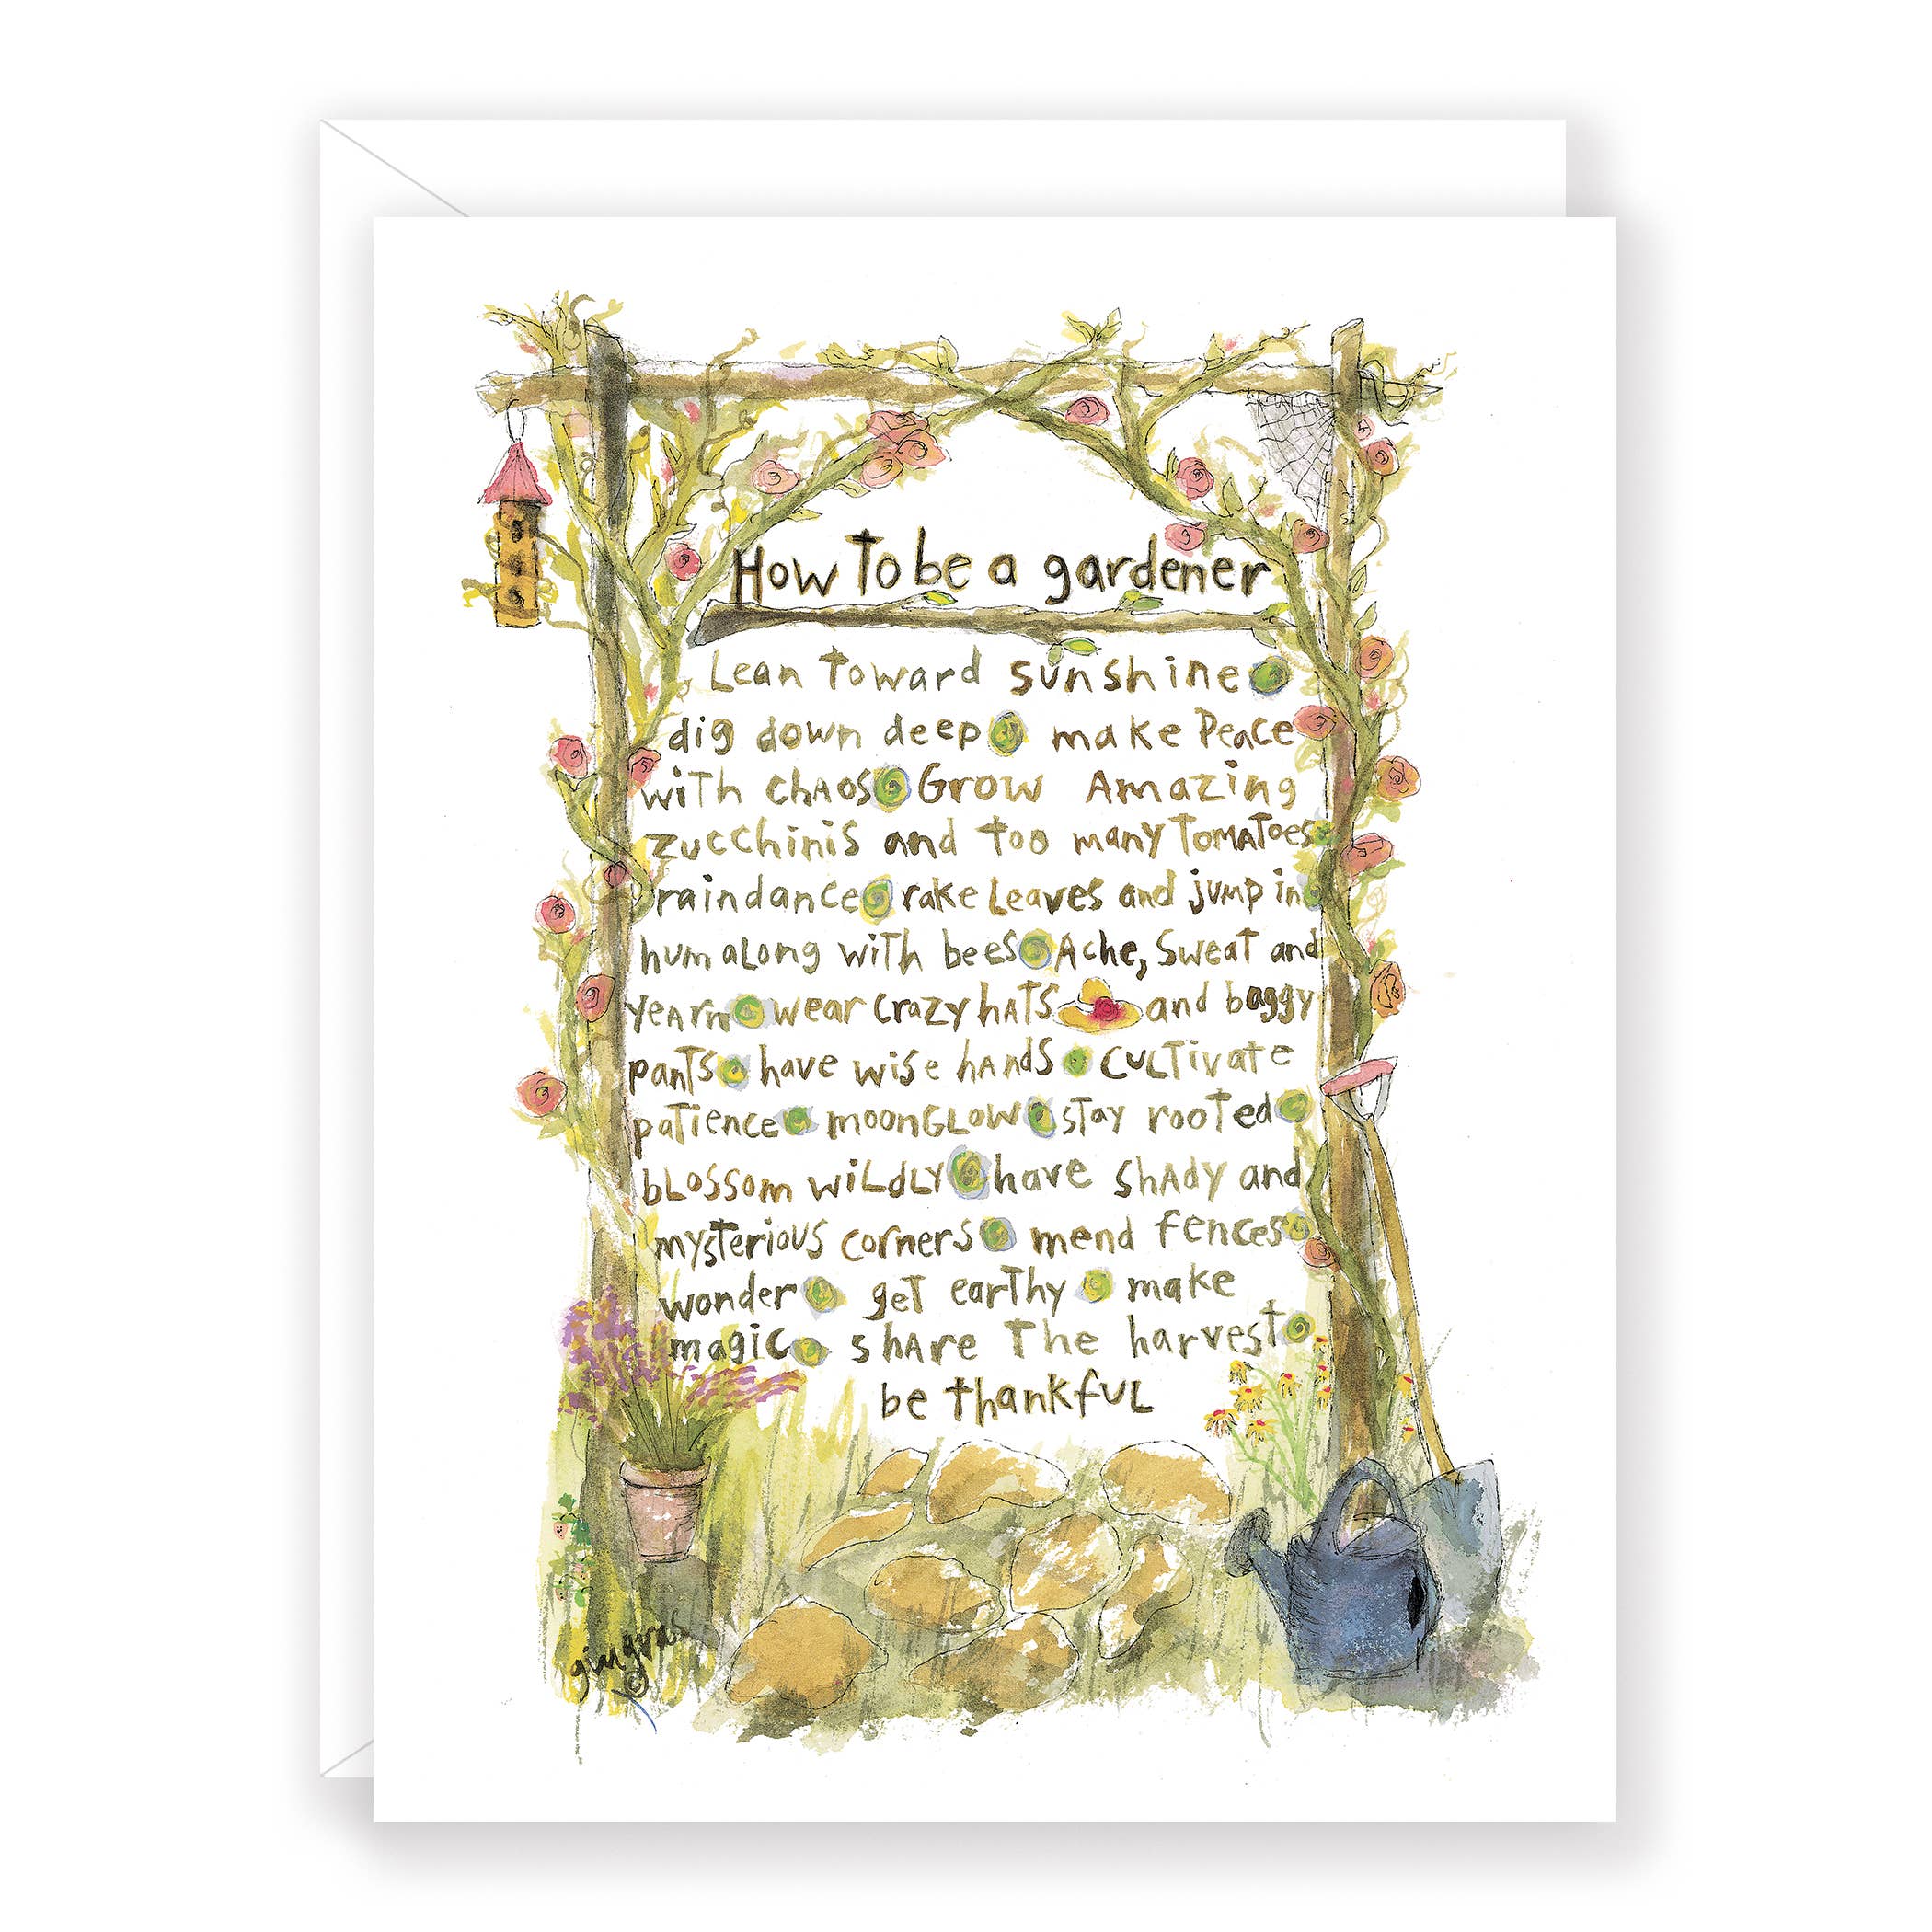 How To be a gardener
Lean Toward sunshine
dig down deep make Peace
with chaos Grow Amazing
zucchinis and too many Tomatoes
raindance rake Leaves and jump in
hum along with bees Ache, Sweat and
yearn wear crazy hats and baggy
pants have wise hands cultivate
patience moonglow stay rooted
blossom wildly have shady and
mysterious corners mend fences
wonder get earthy make
magic share The harvest
be thankful
gingras
©